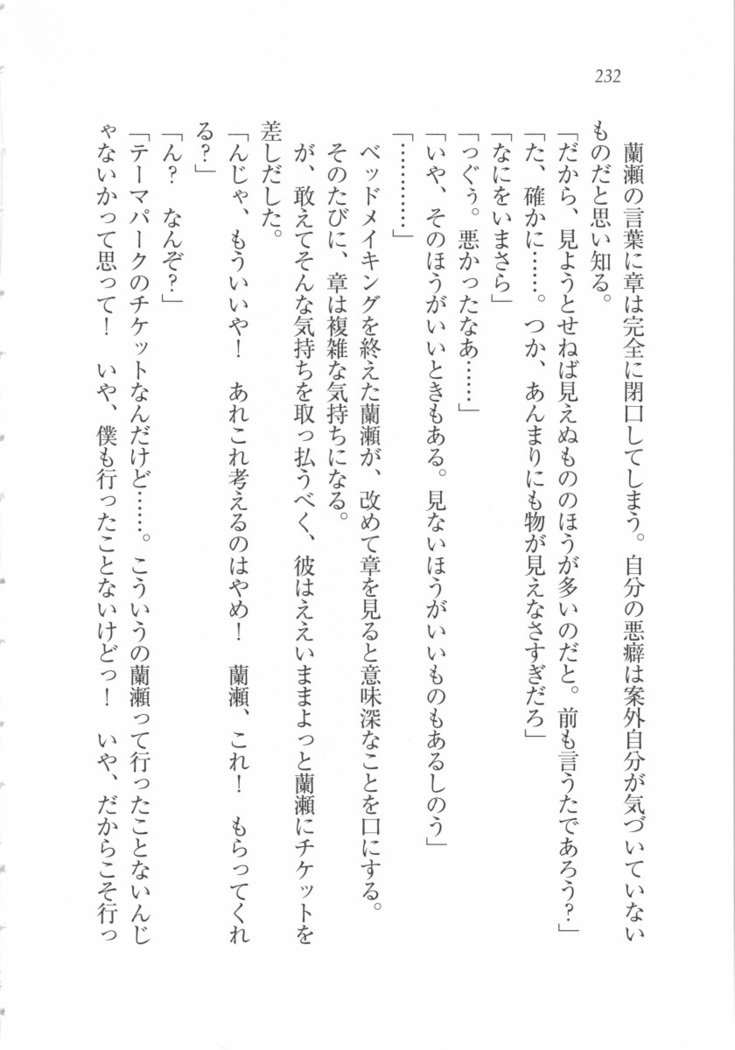 232
蘭瀬の言葉に章は完全に閉口してしまう。自分の悪癖は案外自分が気づいていない
ものだと思い知る。
「だから、見ようとせねば見えぬもののほうが多いのだと。前も言うたであろう?」
「た、確かに……。つか、あんまりにも物が見えなさすぎだろ」
「なにをいまさら」
「っぐぅ。悪かったなあ……」
「いや、そのほうがいいときもある。見ないほうがいいものもあるしのう」
「…………」
ベッドメイキングを終えた蘭瀬が、改めて章を見ると意味深なことを口にする。
そのたびに、章は複雑な気持ちになる。
が、敢えてそんな気持ちを取っ払うべく、彼はええいままよっと蘭瀬にチケットを
差しだした。
「んじゃ、もういいや! あれこれ考えるのはやめ! 蘭瀬、これ! もらってくれ
る?」
「ん? なんぞ?」
「テーマパークのチケットなんだけど……。こういうの蘭瀬って行ったことないんじ
ゃないかって思って! いや、僕も行ったことないけどっ! いや、だからこそ行っ